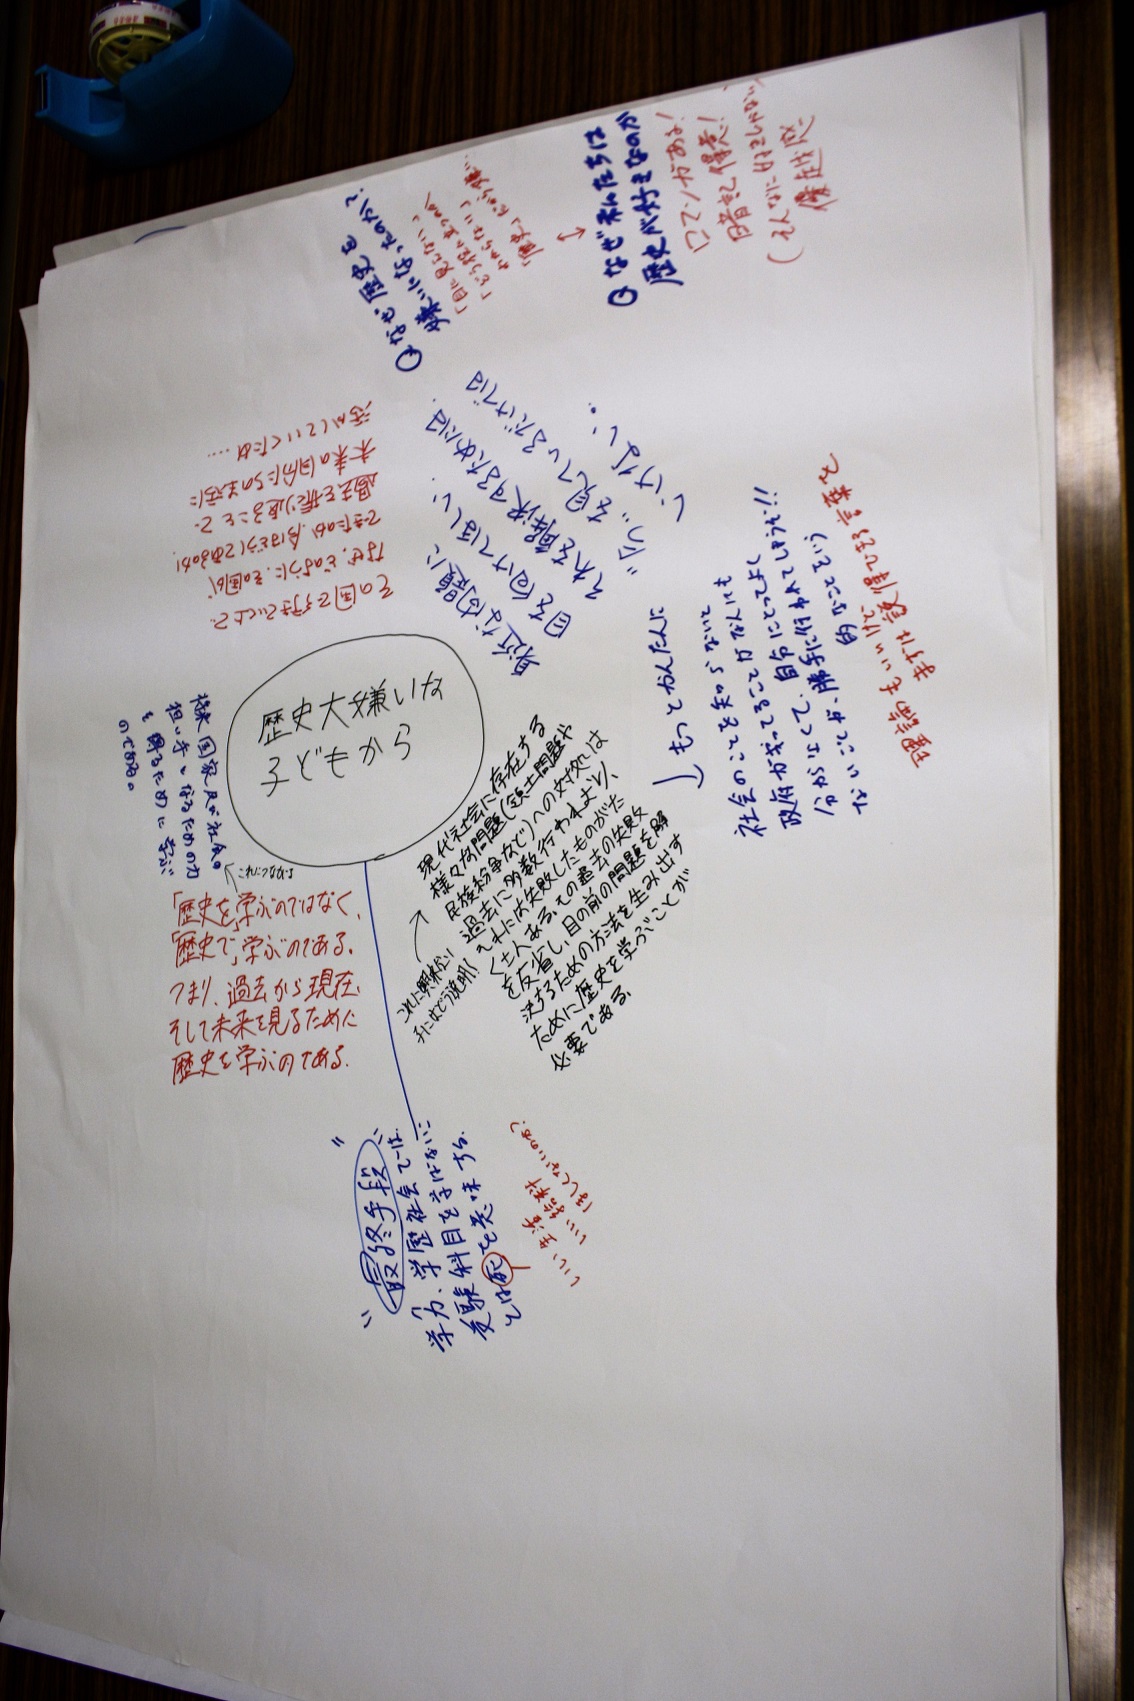 歴史大嫌いな
子どもから
Qなぜ歴史を
嫌いになったのか?
「目に見えない」
わからない」
Qなぜ私たちは
歴史が好きなのか
ロマンがある!
暗記得意!
優越感
その国で生きていく上で、
なぜ、どのように、その国が
できたのか、今はどうしてあるのか、
過去を振り返ることで、
未来の自分たちの生活に
活かしていくため……
身近な問題に
目を向けてほしい。
それを解決するためには
"今"を見ているだけでは
いけない。
もっとかんたんに
社会のことを知らないで
政府が言ってることがなんにも
分かんなくて、自分にとってよく
ないことが、勝手に行われてしまうぞ!!
的なことをいう
理論もいいけど
まずは説得できる言葉を
現代社会に存在する
様々な問題(領土問題や
民族紛争など)への対処は
過去に多数行われており、
それには失敗したものがた
くさんある。その過去の失敗
を反省し、目の前の問題を解
決するための方法を生み出す
ために歴史を学ぶことが
必要である。
これに興味ない
子にはどう説明?
担い手となるための力
を得るために学ぶ
のである。
これにつながる
「歴史を」学ぶのではなく、
「歴史で」学ぶのである。
つまり、過去から現在、
そして未来を見るために
歴史を学ぶのである。
"最終手段"
学力、学歴社会では、
受験科目を学ばないこ
とは死を意味する。
いい生活
いい給料
ほしくないのか?